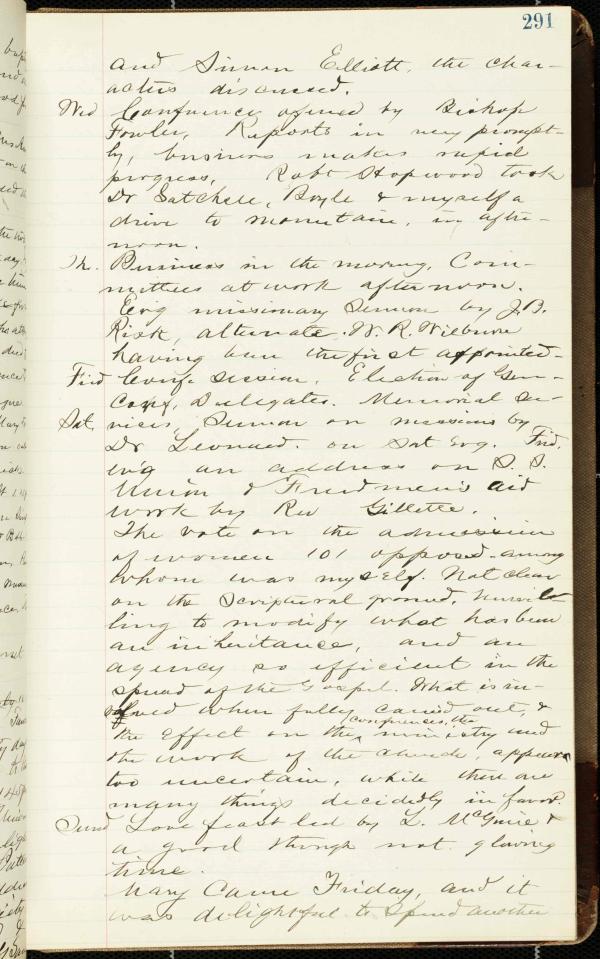 291
and Simon Elliott, the char-
acters discussed.
Wed Conference opened by Bishop
Fowler, Reports in very prompt-
ly, business makes rapid
progress, Robt Hopwood took
Dr Satchell, Boyle & myself a
drive to mountain, in after-
noon.
Th. Business in the morning, Com-
mittees at work afternoon.
Ev'g missionary Sermon by J.B.
Risk, alternate. W. R. Wilburn
having been the first appointed-
Frid Conf. session, Election of Gen-
Conf, Delegates. Memorial Ser-
Sat. vices, Sermon on missions by
Dr Leonard. on Sat Evg. Frid.
ev'g an address on S. S.
Union & Freedmen's aid
work by Rev Gillette.
The vote on the admission
of women 101 opposed - among
whom was myself. Not clear
on the Scriptural ground, unwil-
ling to modify what has been
an inheritance, and an
agency so efficient in the
spread of the Gospel. What is in-
volved when fully carried out, &
conferences, the
the effect on the ministry and
the work of the church, appears
too uncertain, while there are
many things decidedly in favor.
Sund Love feast led by L. McGuire &
a good though not glowing
time.
Mary Came Friday, and it
was delightful to spend another